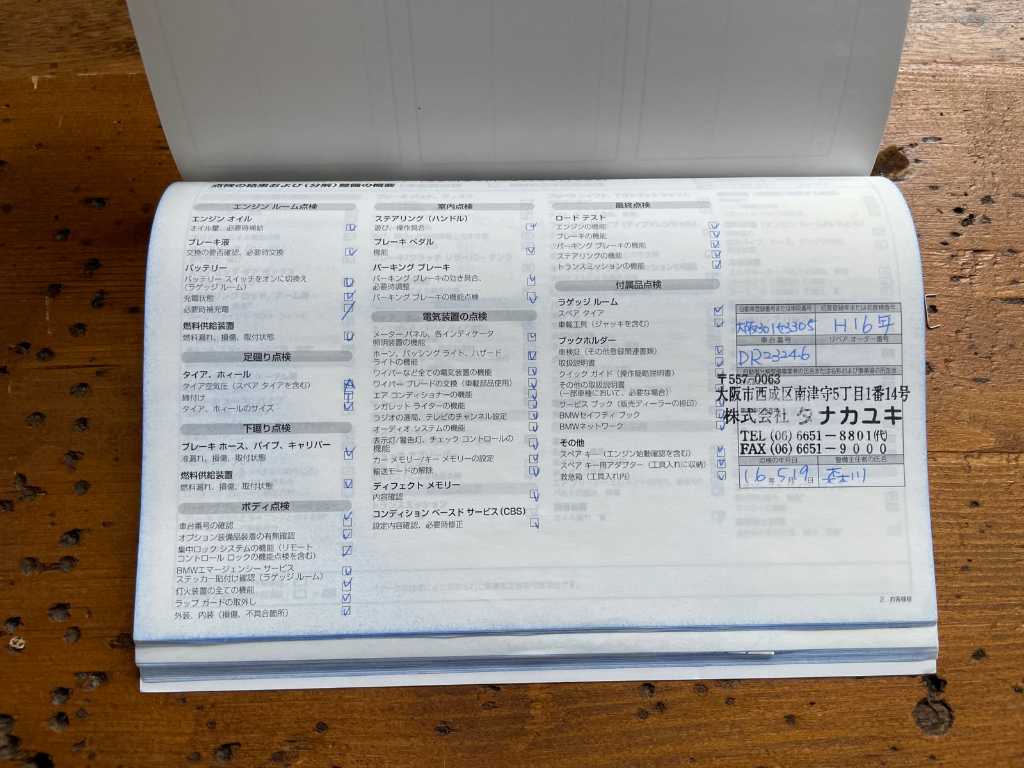 点検の結果および(分解)整備の概要
エンジン ルーム点検
エンジン オイル
オイル量、必要時補給
ブレーキ液
交換の要否確認、必要時交換
バッテリー
バッテリー スイッチをオンに切換え
(ラゲッジ ルーム)
充電状態
必要時補充電
燃料供給装置
燃料漏れ、損傷、取付状態
足廻り点検
タイア、ホィール
タイア空気圧(スペア タイアを含む)
締付け
タイア、ホィールのサイズ
下廻り点検
ブレーキ ホース、パイプ、キャリパー
液漏れ、損傷、取付状態
燃料供給装置
燃料漏れ、損傷、取付状態
ボディ点検
車台番号の確認
オプション装備品装着の有無確認
集中ロック システムの機能(リモート
コントロール ロックの機能点検を含む)
BMWエマージェンシー サービス
ステッカー貼付け確認(ラゲッジ ルーム)
灯火装置の全ての機能
ラップ ガードの取外し
外装、内装(損傷、不具合箇所)
室内点検
ステアリング(ハンドル)
遊び、操作具合
ブレーキ ペダル
機能
パーキング ブレーキ
パーキング ブレーキの効き具合、
必要時調整
パーキング ブレーキの機能点検
電気装置の点検
メーター パネル、各インディケータ
照明装置の機能
ホーン、パッシング ライト、ハザード
ライトの機能
ワイパーなど全ての電気装置の機能
ワイパー ブレードの交換(車載部品使用)
エア コンディショナーの機能
シガレット ライターの機能
ラジオの選局、テレビのチャンネル設定
オーディオ システムの機能
表示灯/警告灯、チェック コントロールの
機能
カー メモリー/キー メモリーの設定
輸送モードの解除
ディフェクト メモリー
内容確認
コンディション ベースド サービス(CBS)
設定内容確認、必要時修正
最終点検
ロード テスト
エンジンの機能
ブレーキの機能
パーキング ブレーキの機能
ステアリングの機能
トランスミッションの機能
付属品点検
ラゲッジ ルーム
スペア タイア
車載工具(ジャッキを含む)
ブックホルダー
車検証(その他登録関連書類)
取扱説明書
クイック ガイド(操作簡略説明書)
その他の取扱説明書
(一部車種において、必要な場合)
サービス ブック(販売ディーラーの捺印)
BMWセイフティ ブック
BMWネットワーク
その他
スペア キー(エンジン始動確認を含む)
スペア キー用アダプター(工具入れに収納)
救急箱(工具入れ内)
自動車登録番号または車両番号
初度登録年または初度検査年
H16年
車台番号
リペア オーダー番号
DR23246
〒557-0063
大阪市西成区南津守5丁目1番14号
株式会社 タナカユキ
TEL (06) 6651-8801(代)
FAX (06) 6651-9000
点検の年月日
整備主任者の氏名
16年5月19日
2. お客様様